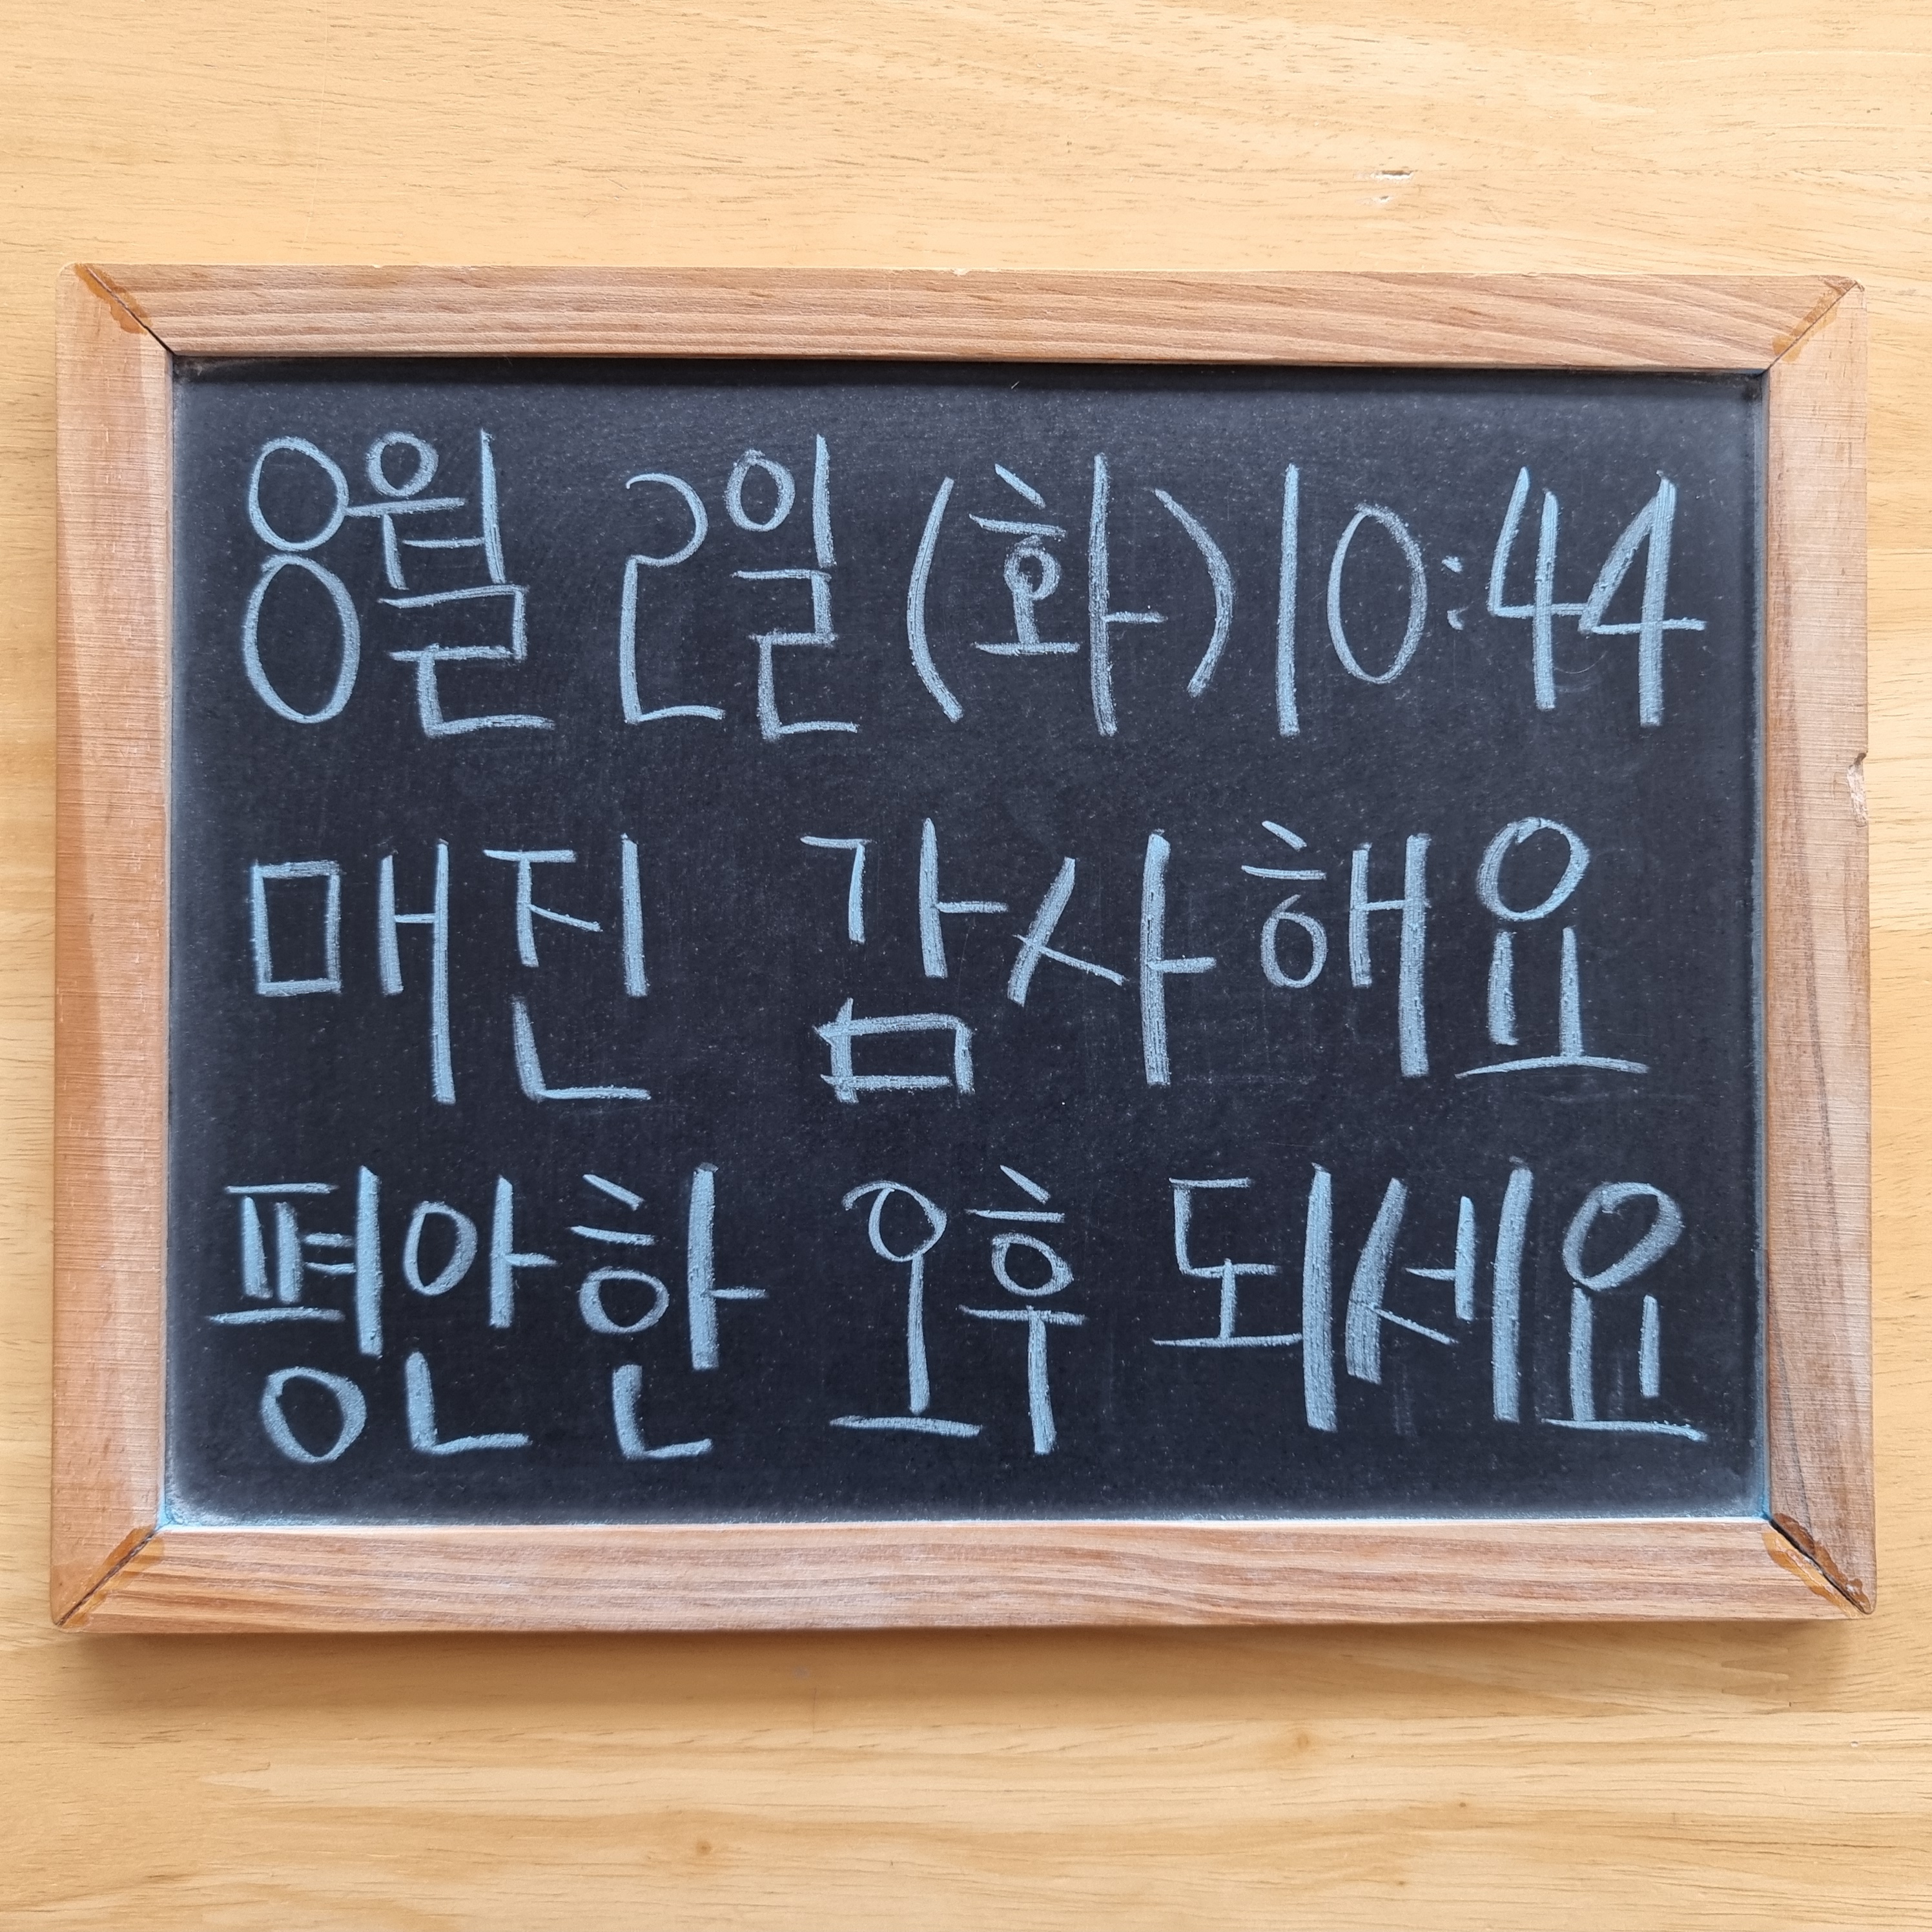 8월 2일 (화) 10:44
매진 감사해요
평안한 오후 되세요